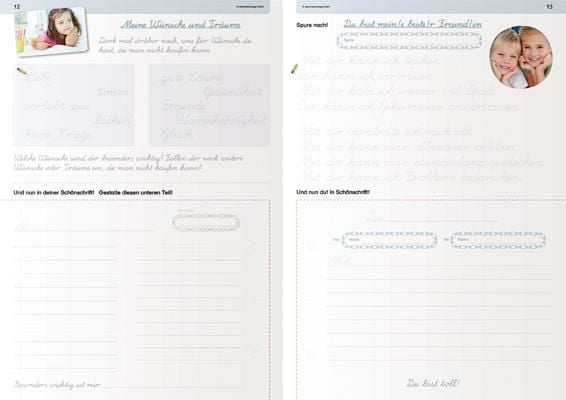 12
Meine Wünsche und Träume
Denk mal drüber nach, was für Wünsche du
hast, die man nicht kaufen kann.
Liebe
Sonne
verliebt sein
lachen
keine Kriege
gute Laune
Gesundheit
Freunde
Warmherzigkeit
Glück
Welche Wünsche sind dir besonders wichtig? Fallen dir noch weitere
Wünsche oder Träume ein, die man nicht kaufen kann?
Und nun in deiner Schönschrift! Gestalte diesen unteren Teil!
Besonders wichtig ist mir
13
Du bist mein/e beste/r Freund/in
Spure nach!
Name
Mit dir kann ich lachen
Dir kann ich vertrauen
Mit dir habe ich immer viel Spaß
Dir kann ich Geheimnisse anvertrauen
Mit dir verabrede ich mich oft
Mit dir kann man Abenteuer erleben
Mit dir kann man stundenlang quatschen
Mit dir kann ich Probleme besprechen
Und nun du! In Schönschrift!
Du
Von Name An Name
Mit
Du bist toll!